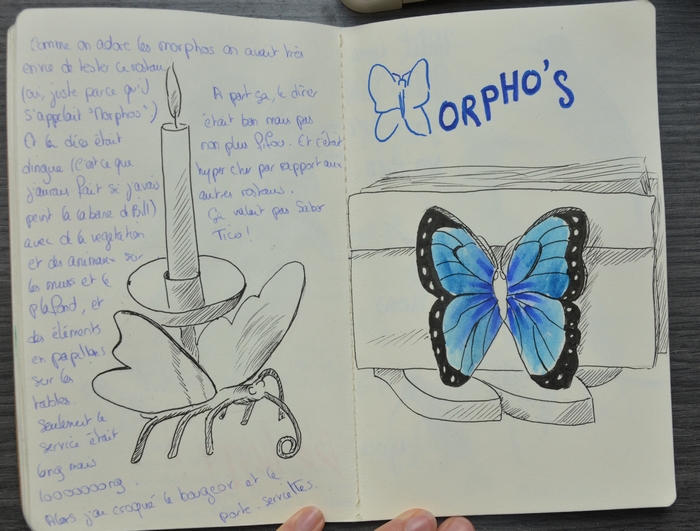 Comme on adore les morphos on avait très
envie de tester ce restau
(oui, juste parce qu'il
s'appelait "Morphos")
Et la déco était
dingue (c'est ce que
j'aurais fait si j'avais
peint la cabane d'Bill)
avec de la vegetation
et des animaux sur
les murs et le
plafond, et
des éléments
en papillons
sur les
tables.
Seulement le
service était
long mais
looooooong.
Alors j'ai croqué le bougeoir et le
porte-serviettes.
A part ça, le dîner
était bon mais pas
non plus fifou. Et c'était
hyper cher par rapport aux
autres restaus.
Ça valait pas Sabor
Tico!
MORPHO'S